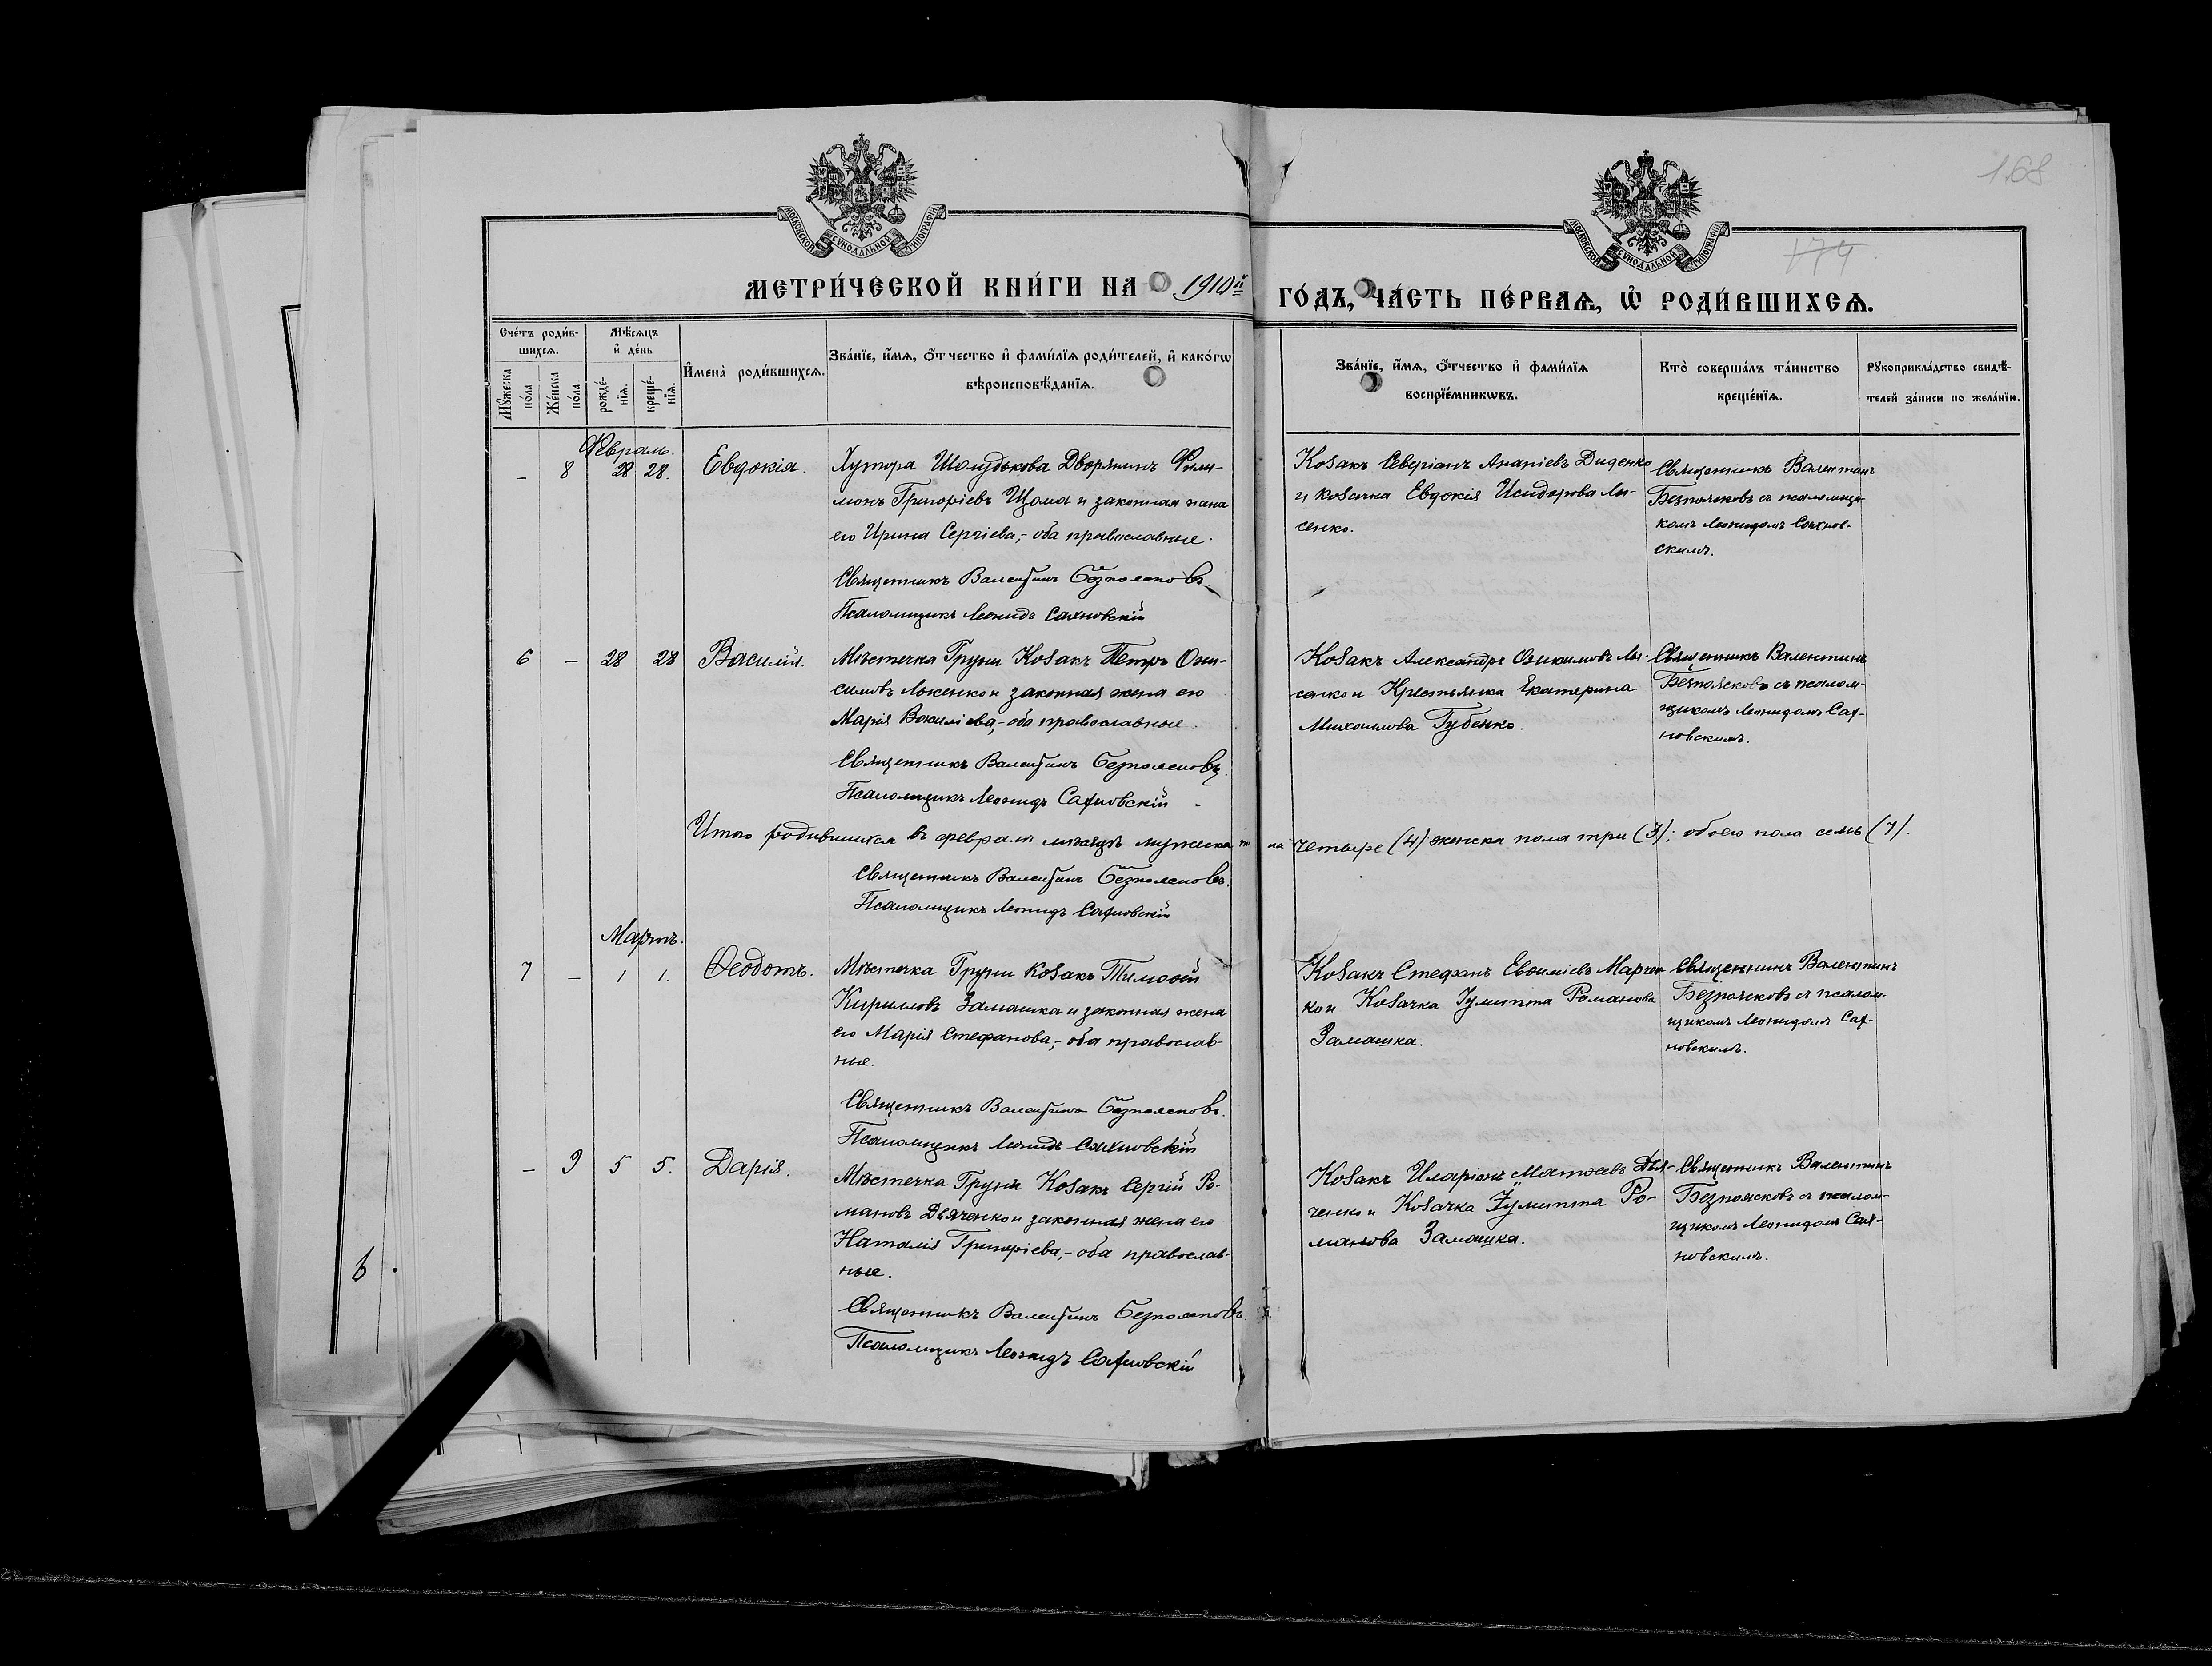 168
174
МОСКОВСКОЙ СѴНОДАЛЬНОЙ ТИПОГРАФІИ
МОСКОВСКОЙ СѴНОДАЛЬНОЙ ТИПОГРАФІИ
МЕТРИ́ЧЕСКОЙ КНИ́ГИ НА 1910й ГО́ДЪ, ЧА́СТЬ ПЕ́РВАѦ, Ѡ҆ РОДИ́ВШИХСѦ.
Сче́тъ роди́в-
шихсѧ.
Мꙋ́жеска
по́ла
Же́нска
по́ла
Мѣ́сѧцъ
и҆ де́нь
рожде́-
нїѧ.
креще́-
нїѧ.
И҆мена̀ роди́вшихсѧ.
Зва́нїе, и҆́мѧ, ѻ҆́тчество и҆ фами́лїѧ роди́телей, и҆ како́гѡ
вѣроисповѣ́данїѧ.
Зва́нїе, и҆́мѧ, ѻ҆́тчество и҆ фами́лїѧ
воспрїе́мникѡвъ.
Кто̀ соверша́лъ та́инство
креще́нїѧ.
Рꙋкоприкла́дство свидѣ́-
телей за́писи по жела́нїю.
Февраль.
– 8 28 28. Евдокія.
Хутора Шолудькова Дворянинъ Фили-
монъ Григоріевъ Щома и законная жена
его Ирина Сергіева,- оба православные.
Священникъ Валентинъ Безпоясковъ
Псаломщикъ Леонидъ Сахновскій
Козакъ Северіанъ Ананіевъ Диденко
и козачка Евдокія Исидорова Лы-
сенко.
Священникъ Валентинъ
Безпоясковъ съ псаломщи-
комъ Леонидомъ Сахнов-
скимъ.
6 – 28 28 Василій.
Мѣстечка Груни Козакъ Петръ Они-
симовъ Лысенко и законная жена его
Марія Василіева,- оба православные.
Священникъ Валентинъ Безпоясковъ
Псаломщикъ Леонидъ Сахновскій
Козакъ Александръ Онисимовъ Лы-
сенко и Крестьянка Екатерина
Михаилова Губенко.
Священникъ Валентинъ
Безпоясковъ съ псалом-
щикомъ Леонидомъ Сах-
новскимъ.
Итого родившихся въ февралѣ мѣсяцѣ мужска пола четыре (4) женска пола три (3); обоего пола семь (7).
Священникъ Валентинъ Безпоясковъ.
Псаломщикъ Леонидъ Сахновскій
Мартъ.
7 – 1 1. Ѳеодотъ.
Мѣстечка Груни Козакъ Тимоѳей
Кирилловъ Замашка и законная жена
его Марія Стефанова,- оба православ-
ные.
Священникъ Валентинъ Безпоясковъ.
Псаломщикъ Леонидъ Сахновскій
Козакъ Стефанъ Евѳиміевъ Марчен-
ко и Козачка Іулитта Романова
Замашка.
Священникъ Валентинъ
Безпоясковъ съ псалом-
щикомъ Леонидомъ Сах-
новскимъ.
– 9 5 5. Дарія.
Мѣстечка Груни Козакъ Сергій Ро-
мановъ Дьяченко и законная жена его
Наталія Григоріева,- оба православ-
ные.
Священникъ Валентинъ Безпоясковъ.
Псаломщикъ Леонидъ Сахновскій
Козакъ Иларіонъ Матѳеевъ Дья-
ченко и Козачка Іулитта Ро-
манова Замашка.
Священникъ Валентинъ
Безпоясковъ съ псалом-
щикомъ Леонидомъ Сах-
новскимъ.